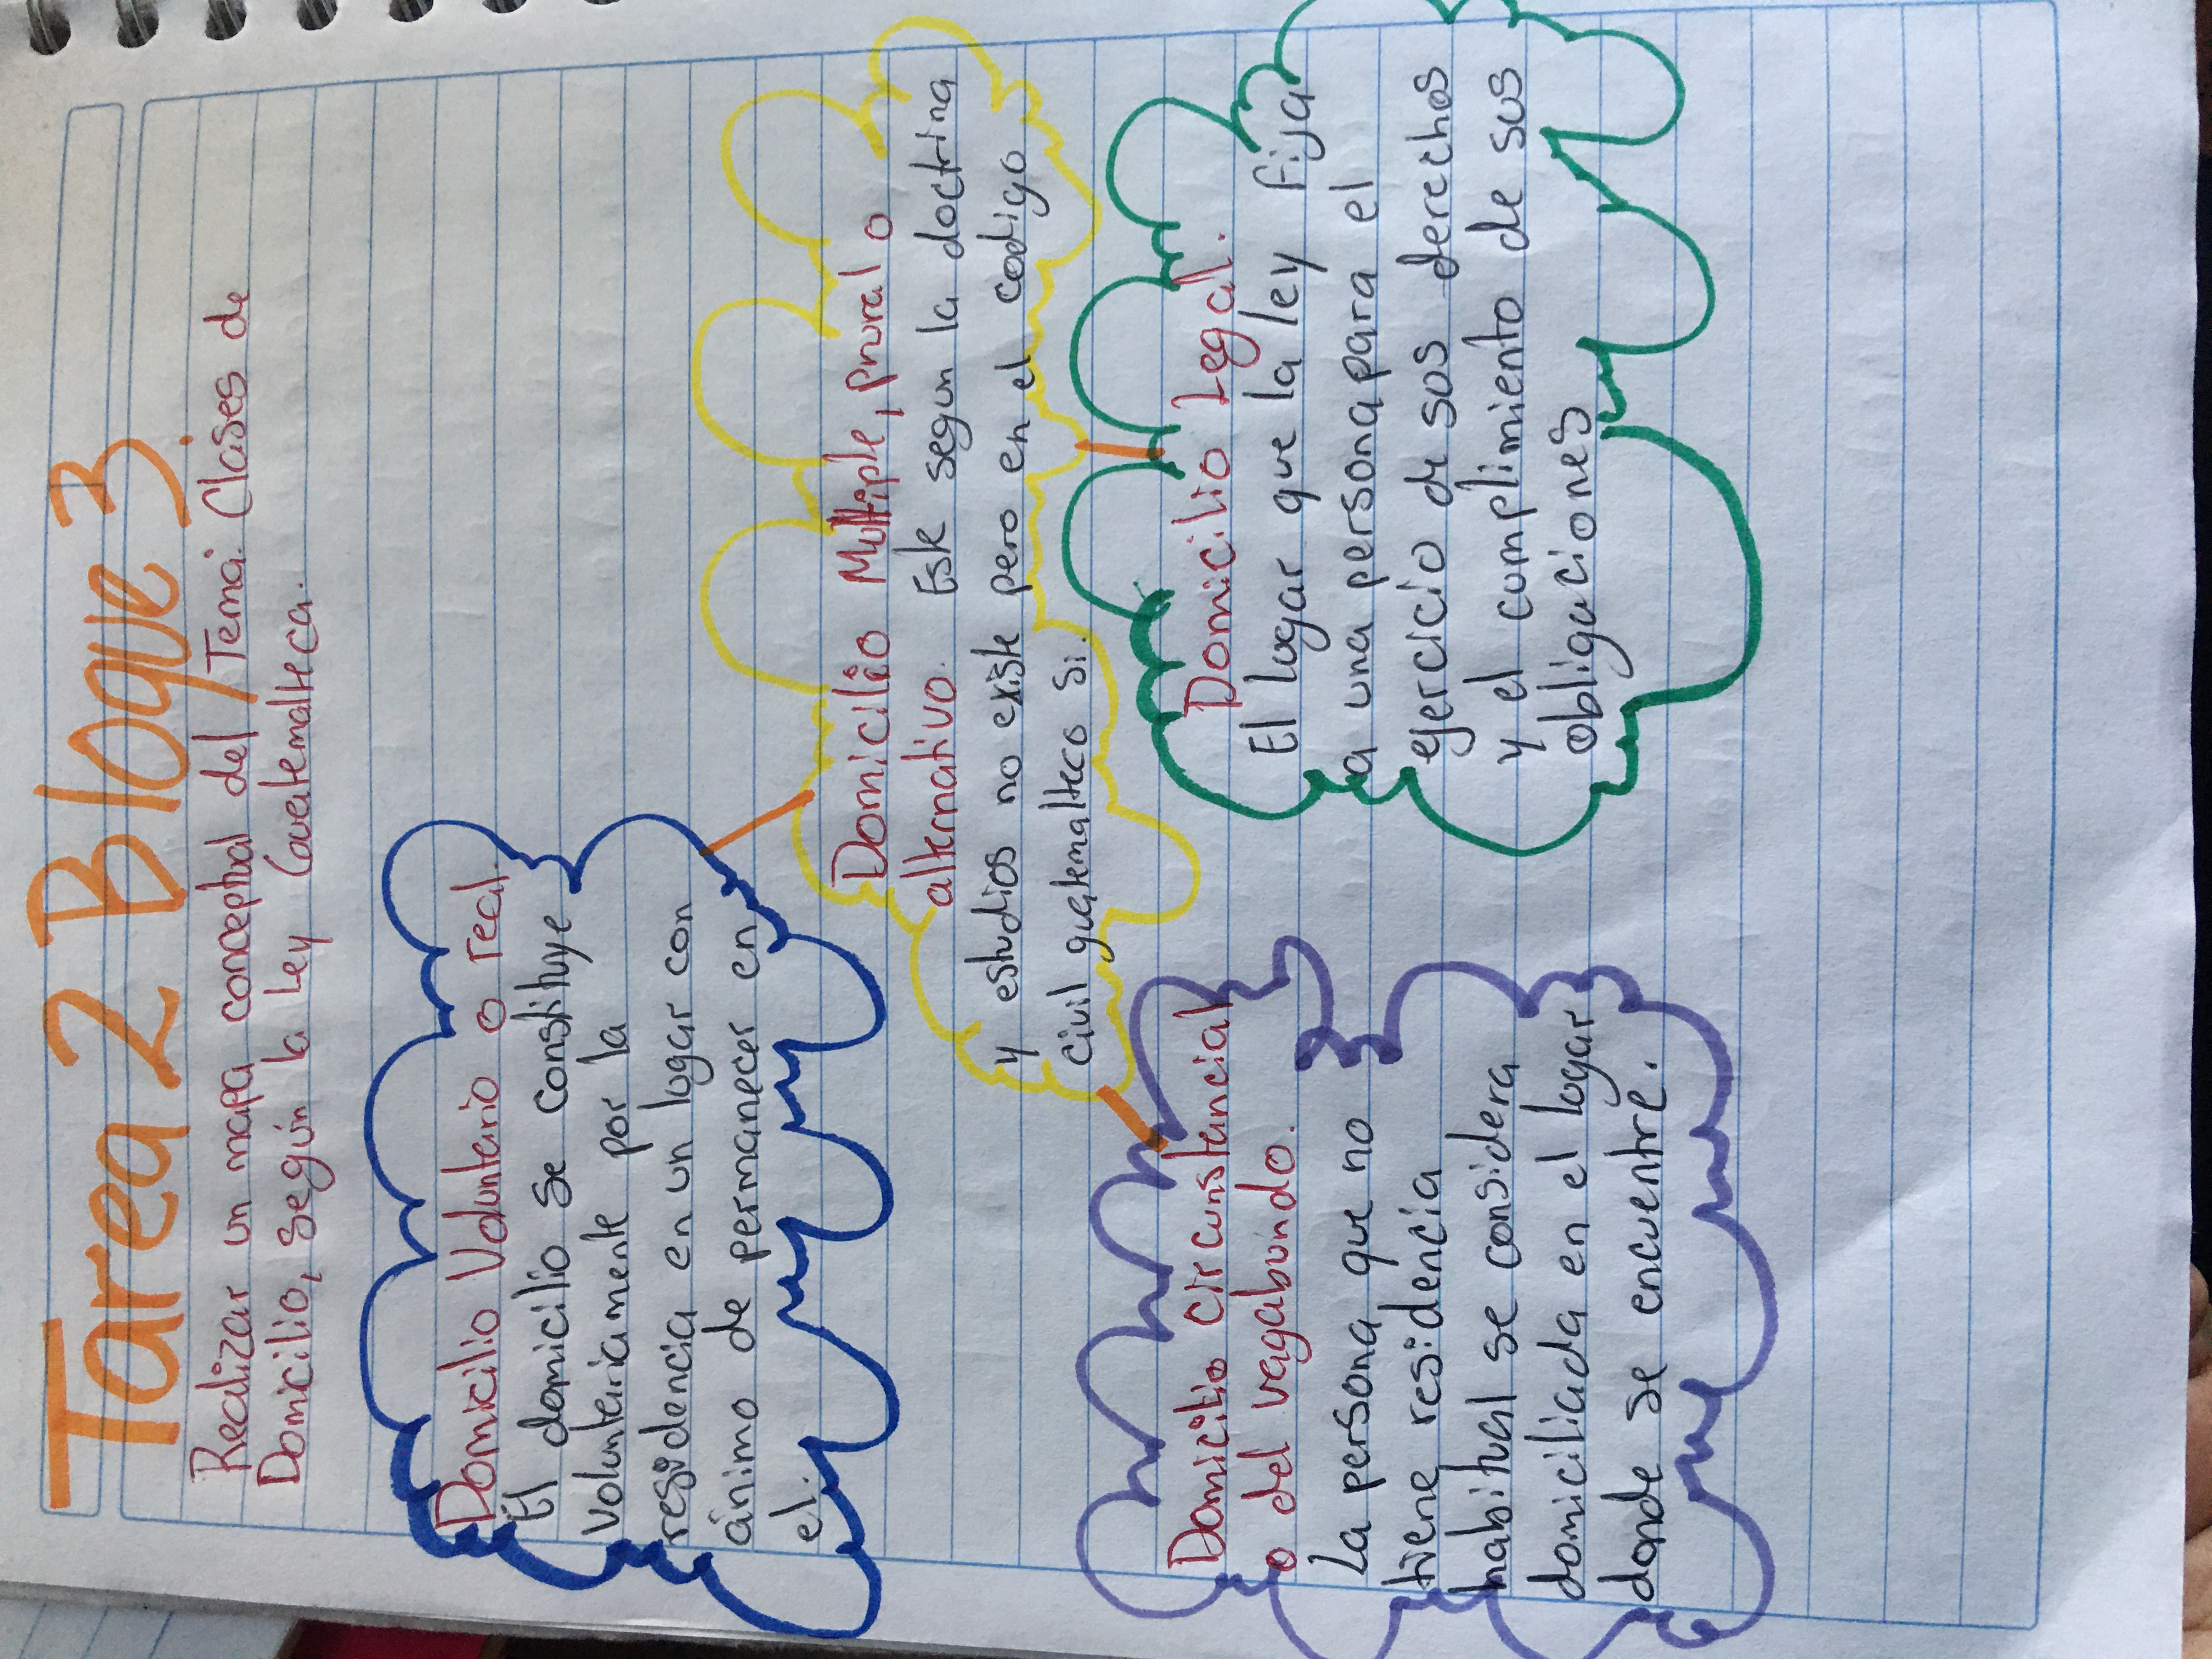 Tarea 2 Bloque 3
Realizar un mapa conceptual del Tema: Clases de
Domicilio, según la Ley Guatemalteca.
Domicilio Voluntario o real.
El domicilio se constituye
voluntariamente por la
residencia en un lugar con
ánimo de permanecer en
el.
Domicilio Multiple, prural o
alternativo. Este segun la doctrina
y estudios no existe pero en el codigo
civil guatemalteco si.
Domicilio circunstancial
o del vagabundo.
La persona que no
tiene residencia
habitual se considera
domiciliada en el lugar
donde se encuentre.
Domicilio Legal.
El lugar que la ley fija
a una persona para el
ejercicio de sus derechos
y el cumplimiento de sus
obligaciones